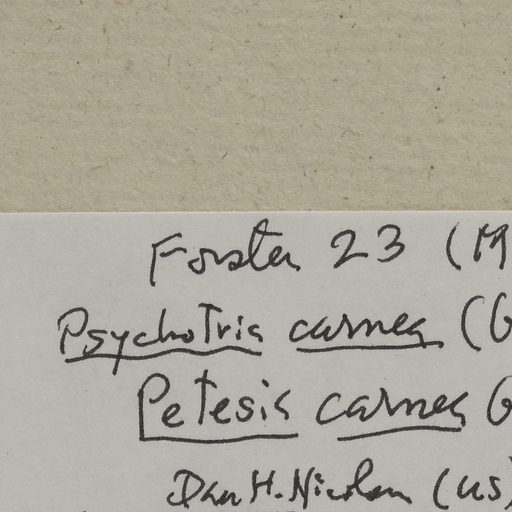 Forster 23 (M
Psychotria carnea (G
Petesia carnea G
Dan H. Nicolson (US)